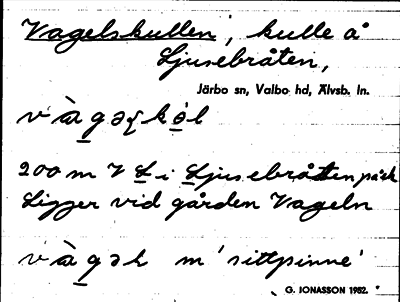 Vagelskullen, kulle å
Ljusebråten,
Järbo sn, Valbo hd, Älvsb. ln.
200 m V L i Ljusebråten på ek
Ligger vid gården Vageln
m 'sittpinne'
G. JONASSON 1982.